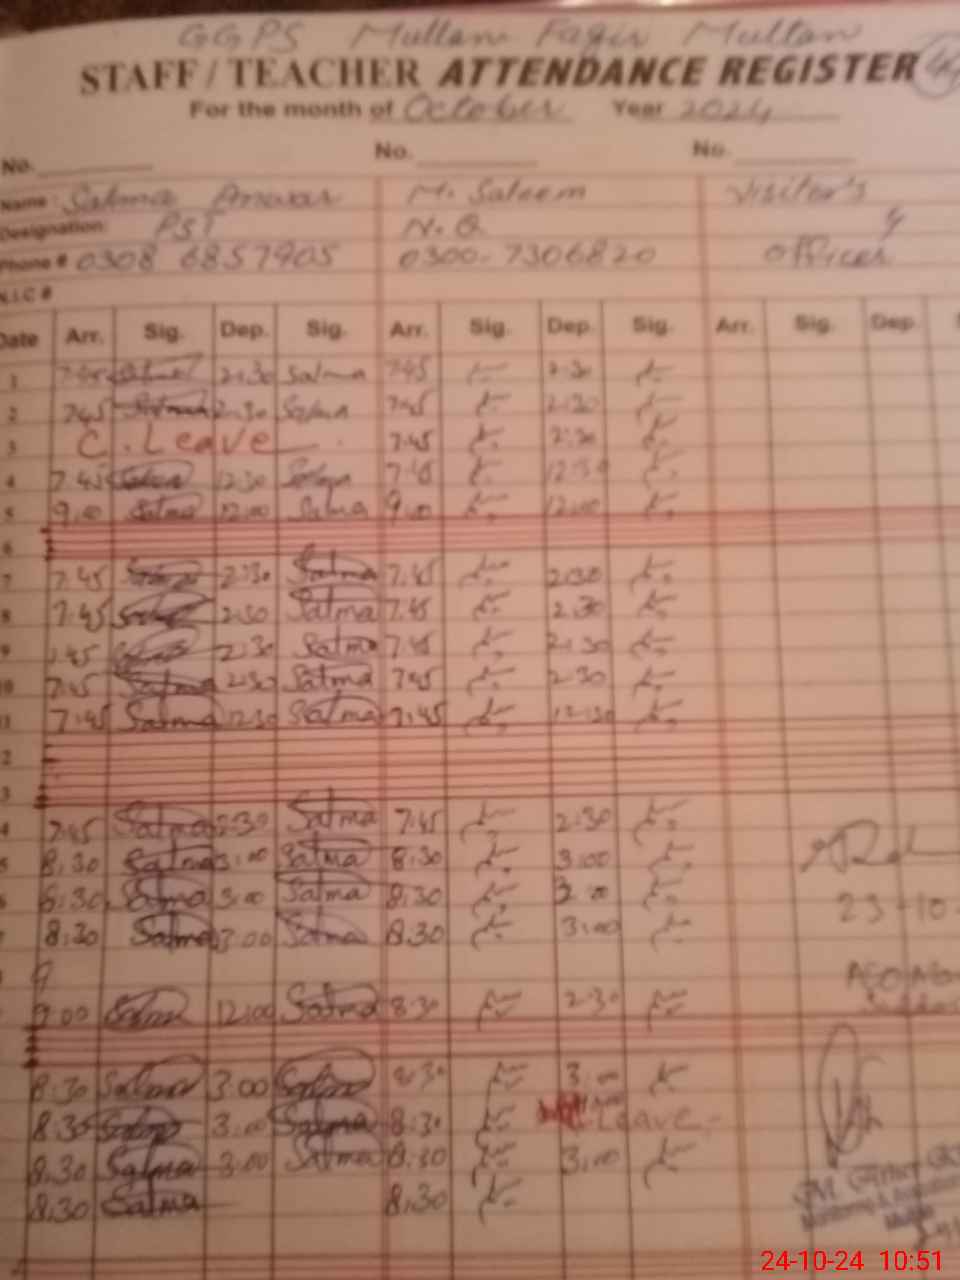 GGPS Multani Faqir Multan
STAFF / TEACHER ATTENDANCE REGISTER
For the month of October Year 2024
No. No. No.
Name: Salma Anwar M. Saleem Visitor's
Designation: PST N.Q &
Phone # 0308 6857905 0300-7306820 officer
N.I.C #
Date Arr. Sig. Dep. Sig. Arr. Sig. Dep. Sig. Arr. Sig. Dep.
1 7.45 2:30 Salma 7.45 2:30
2 7.45 Salma 2.30 Salma 7.45 2:30
3 C. Leave 7.45 2:30
4 7.45 Salma 12.30 Salma 7.45 12:30
5 9.00 Salma 12.00 Salma 9.00 12:00
6
7 7.45 2:30 Salma 7.45 2:30
8 7.45 2:30 Salma 7.45 2.30
9 7.45 2:30 Salma 7.45 2:30
10 7.45 Salma 2:30 Salma 7.45 2:30
11 7.45 Salma 12:30 Salma 7.45 12:30
2
3
4 7.45 Salma 2:30 Salma 7.45 2:30
5 8.30 Salma 3:00 Salma 8.30 3:00
6 8.30 Salma 3:00 Salma 8.30 3:00
7 8:30 Salma 3.00 Salma 8.30 3:00
23-10-
9.00 Salma 12:00 Salma 8:30 2:30
8:30 Salma 3:00 Salma 8:30 3:00
8:30 Salma 3:00 Salma 8:30 Leave
8.30 Salma 3:00 Salma 8:30 3:00
8:30 Salma 8:30
24-10-24 10:51